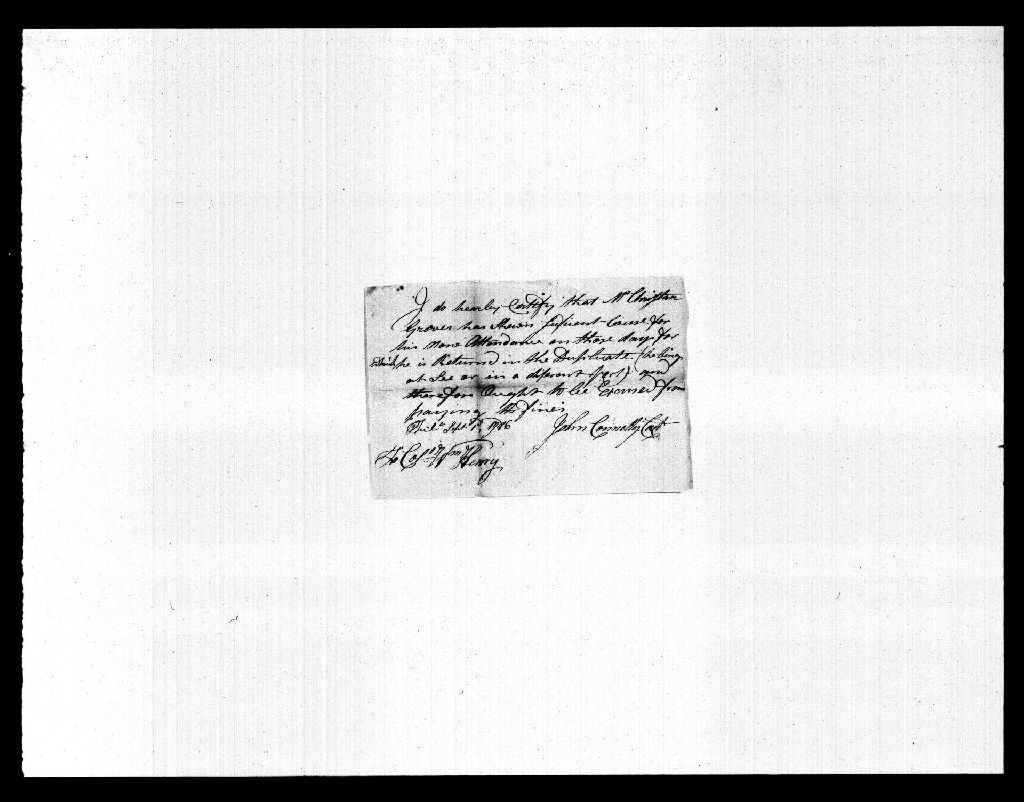 I do hearby Certify that Mr Christian
Groves has shewn sufisent Cause for
his None Attendance on those days for
which he is Returnd in the Duplicate (he being
at See or in a diferent part) and
therefore Ought to be Excused from
paying the fines
Phila Sept 1786
John Connelly Capt
To Col Wm Henry